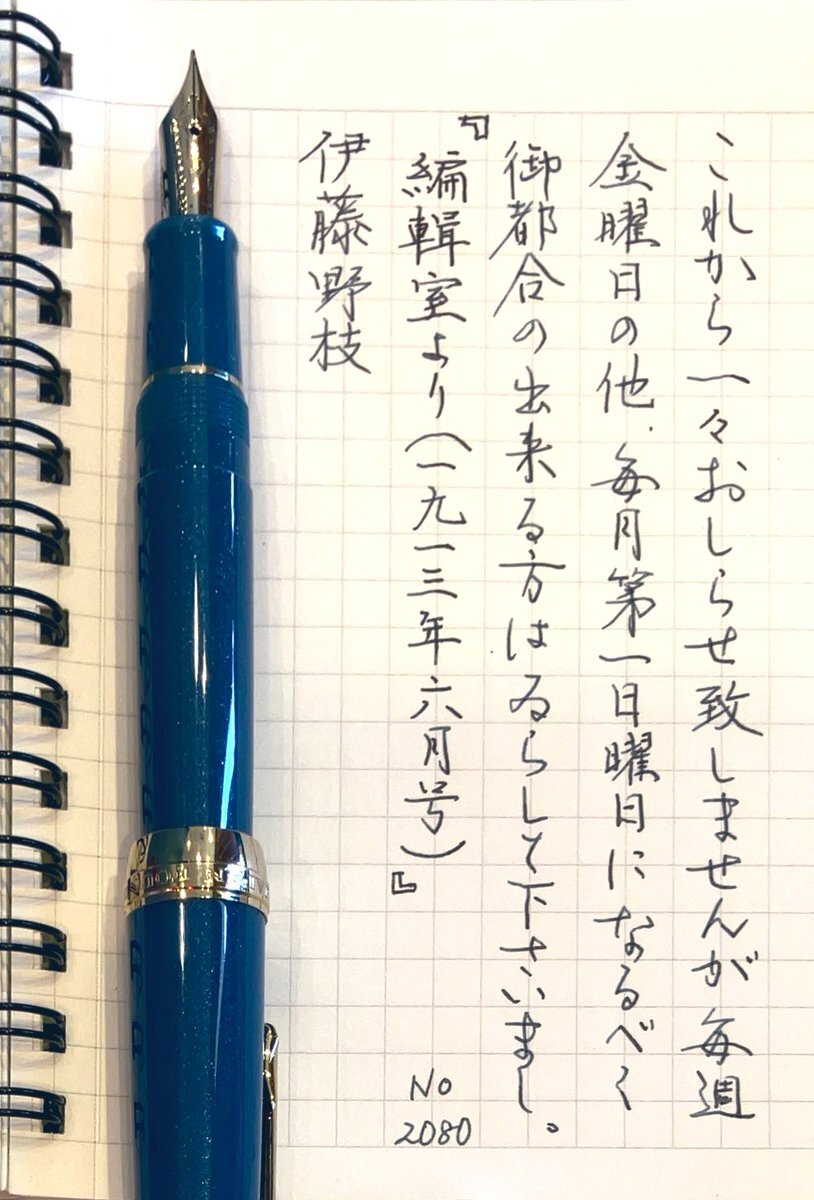 これから一々おしらせ致しませんが毎週
金曜日の他、毎月第一日曜日になるべく
御都合の出来る方はゐらして下さいまし。
『編輯室より（一九一三年六月号）』
伊藤野枝
No
2080